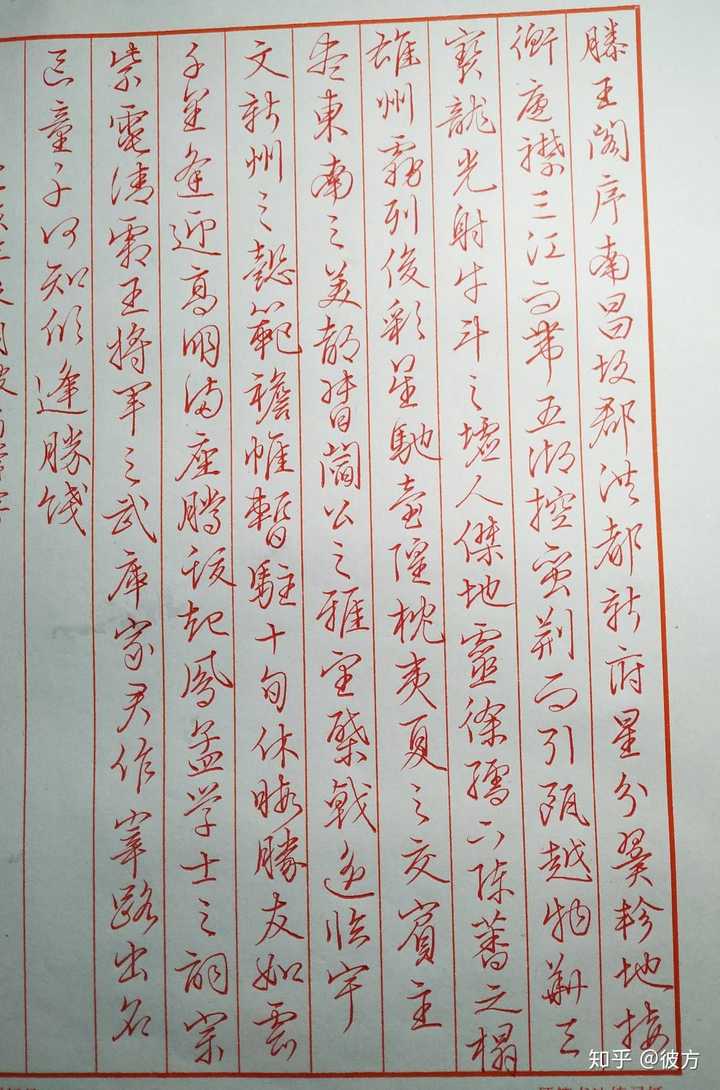 滕王阁序南昌故郡洪都新府星分翼軫地接
衡庐襟三江而帶五湖控蛮荆而引瓯越物華天
寶龍光射牛斗之墟人傑地靈徐孺下陳蕃之榻
雄州霧列俊彩星馳臺隍枕夷夏之交賓主
盡東南之美都督閻公之雅望棨戟遥临宇
文新州之懿範襜帷暫駐十旬休暇勝友如雲
千里逢迎高朋满座騰蛟起鳳孟学士之詞宗
紫電清霜王将军之武庫家君作宰路出名
区童子何知躬逢勝饯
知乎 @彼方